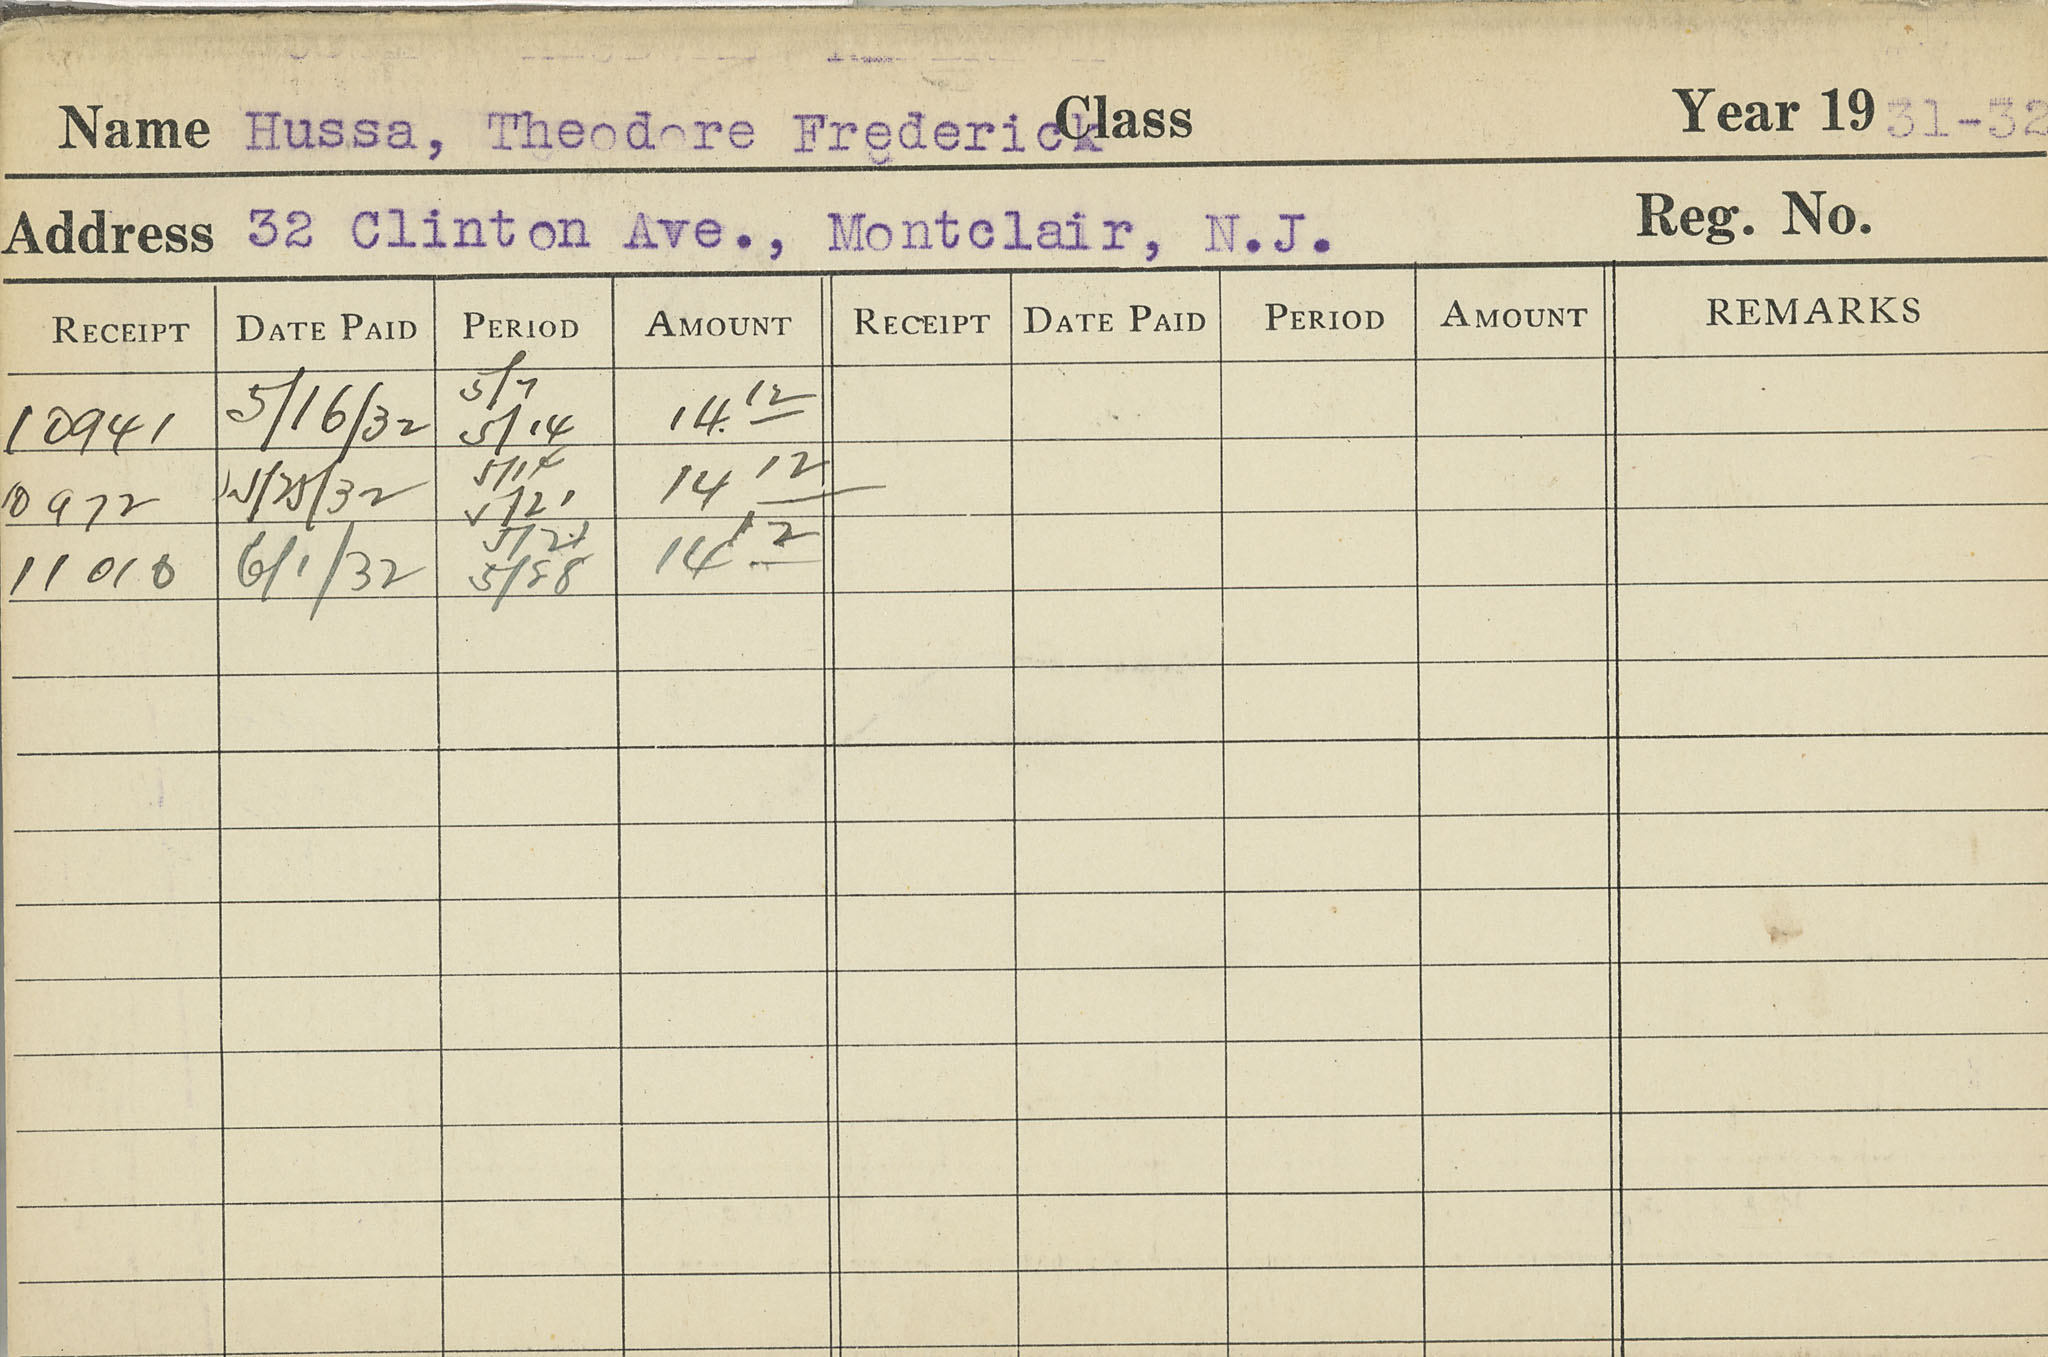 Name Hussa, Theodore Frederick Class Year 1931-32
Address 32 Clinton Ave., Montclair, N.J. Reg. No.
RECEIPT DATE PAID PERIOD AMOUNT RECEIPT DATE PAID PERIOD AMOUNT REMARKS
5/7
10941 5/16/32 5/14 14.12
5/14
0972 5/25/32 5/21 14 12
5/21
11010 6/1/32 5/28 14 12